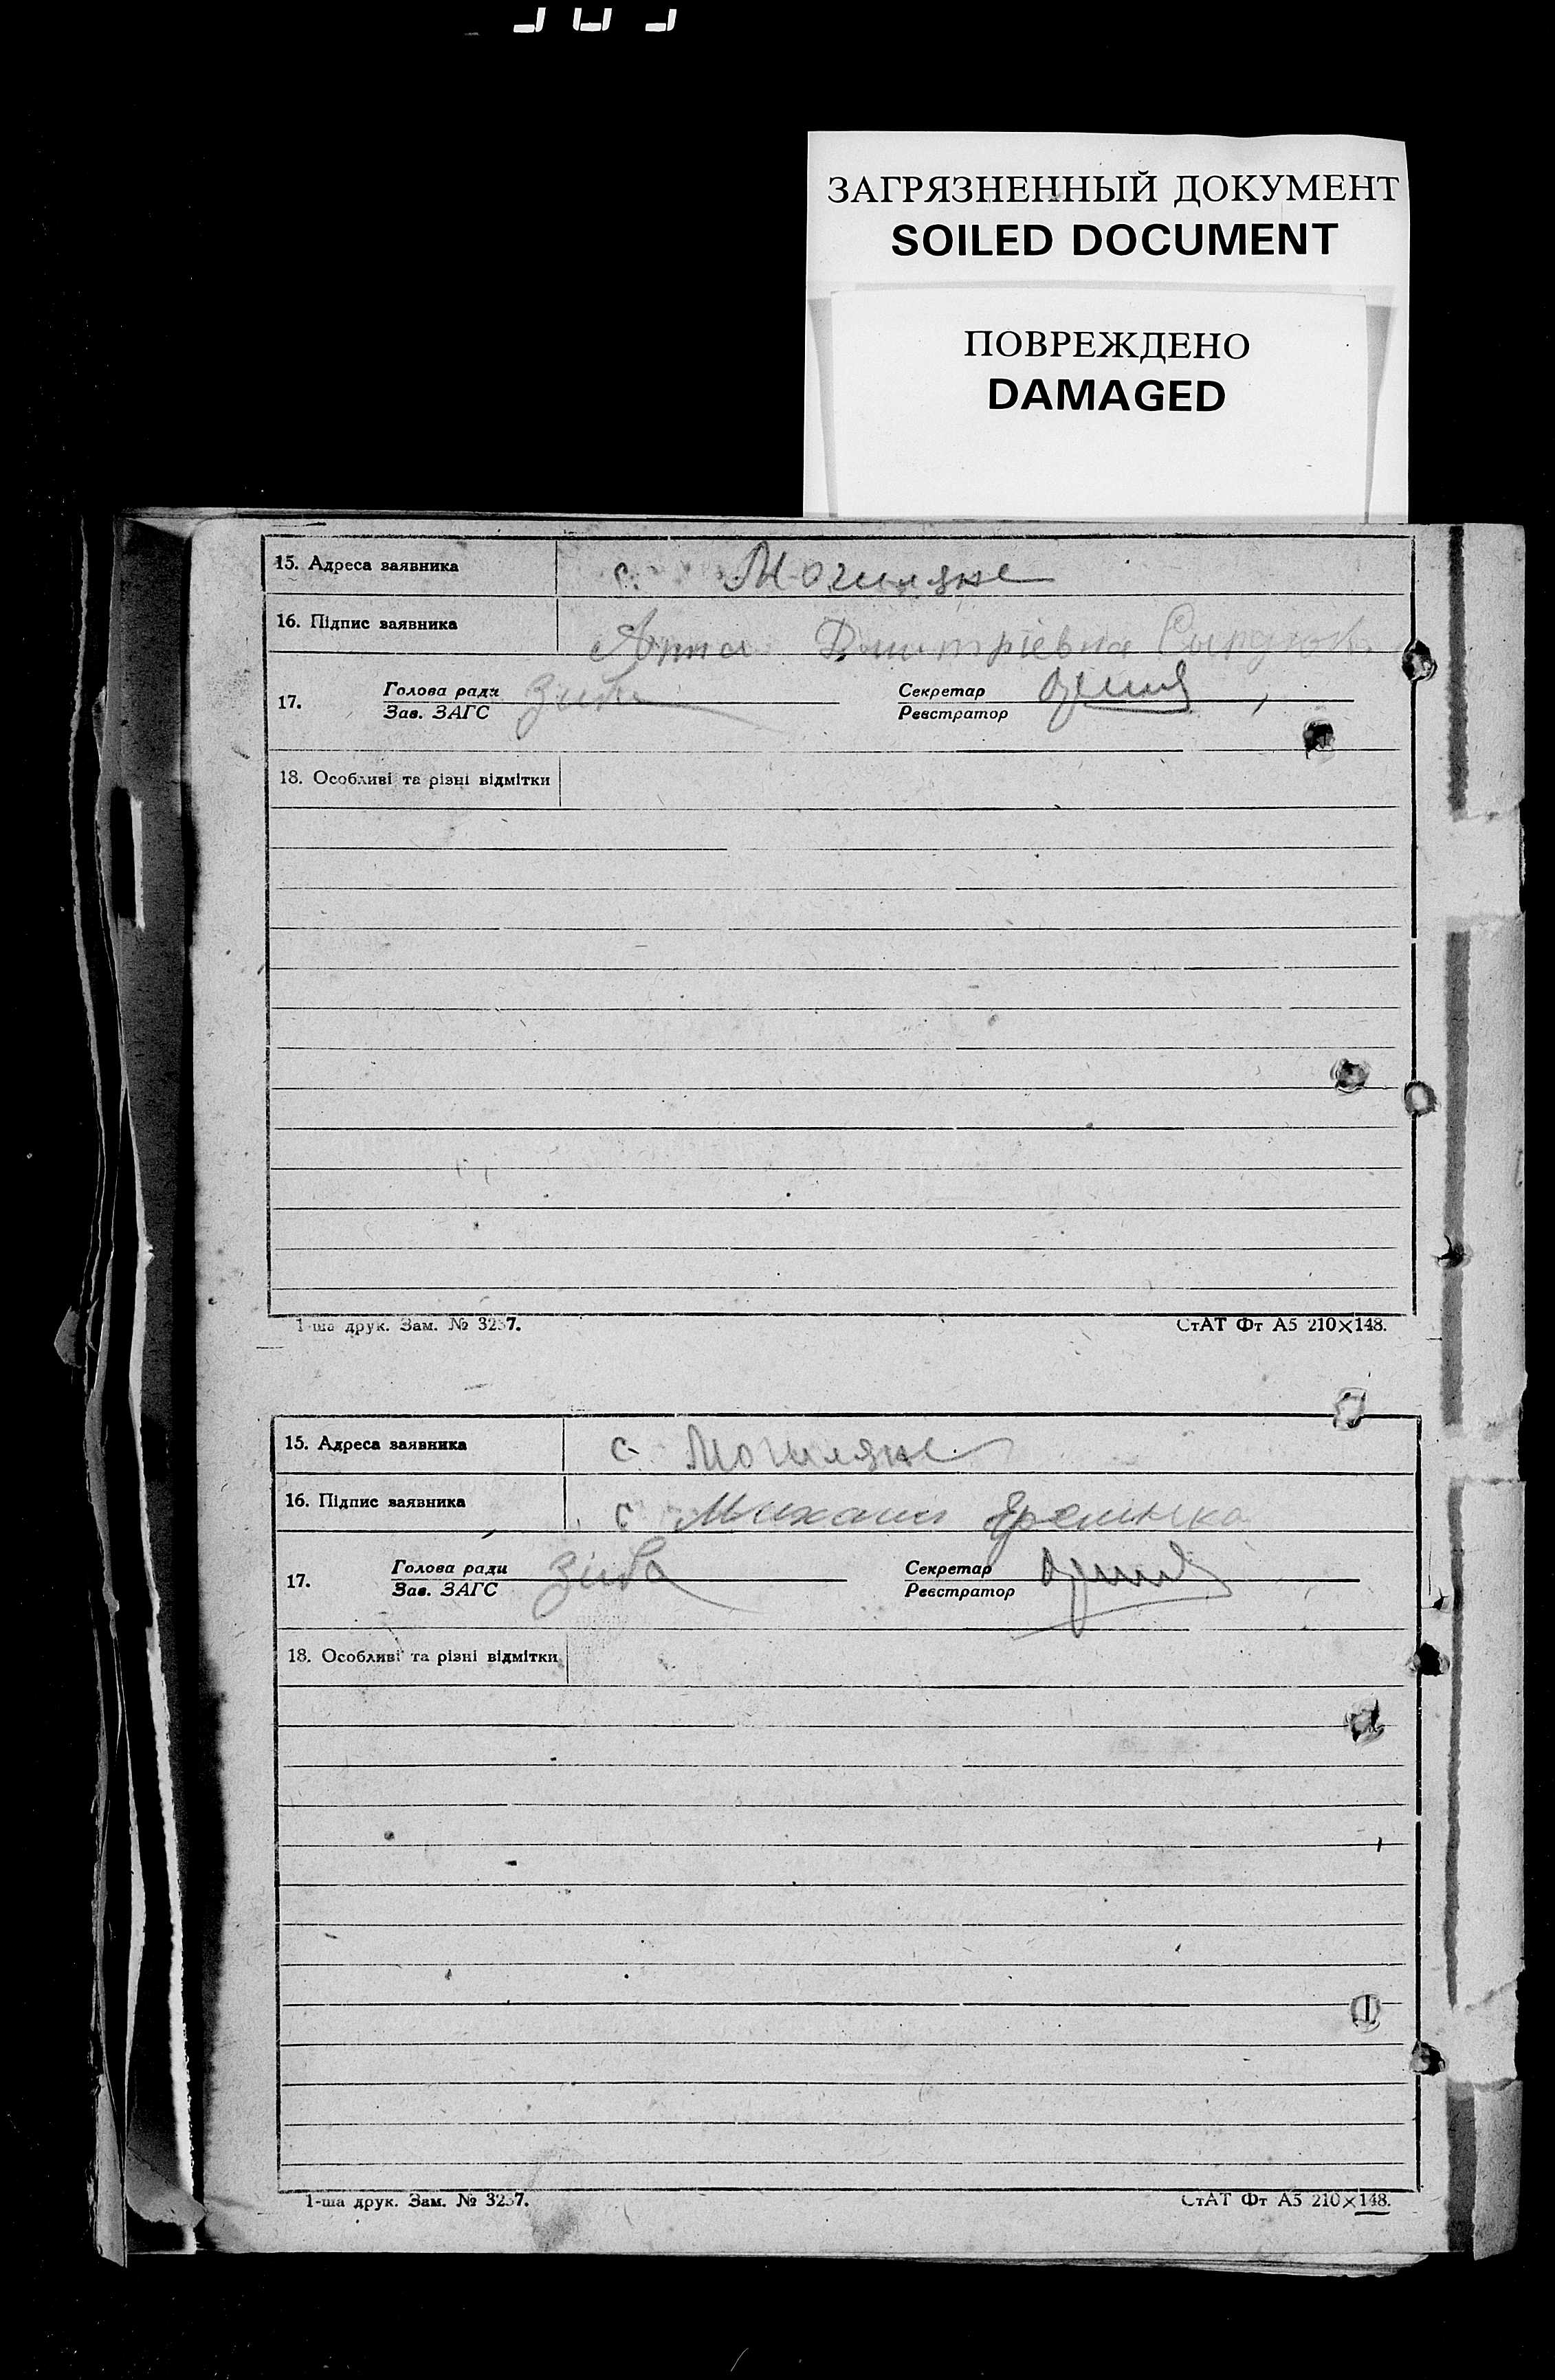 ЗАГРЯЗНЕННЫЙ ДОКУМЕНТ
SOILED DOCUMENT
ПОВРЕЖДЕНО
DAMAGED
15. Адреса заявника с. Могиляне
16. Підпис заявника Анна Дмитріевна
17. Голова ради Зиба Секретар
Зав. ЗАГС Реєстратор
18. Особливі та різні відмітки
1-ша друк. Зам. № 3237. СтАТ Фт А5 210×148.
15. Адреса заявника с. Могиляне
16. Підпис заявника с Михаил
17. Голова ради Зиба Секретар
Зав. ЗАГС Реєстратор
18. Особливі та різні відмітки
1-ша друк. Зам. № 3237. СтАТ Фт А5 210×148.